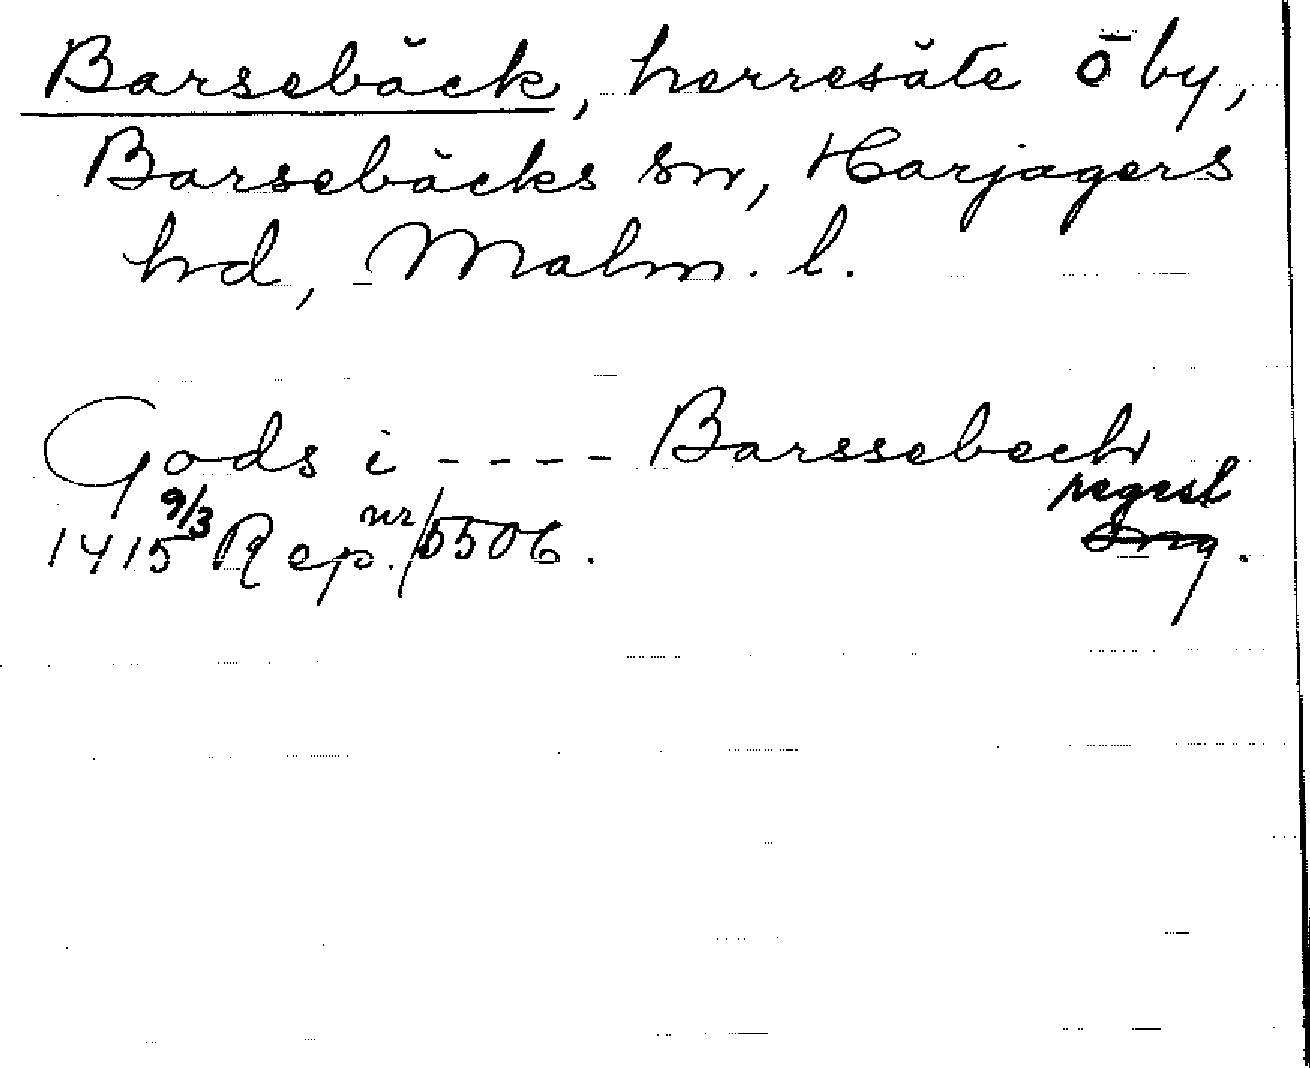 Barsebäck, herresäte o by,
Barsebäcks sn, Harjagers
hd, Malm. l.
Gods i - - - - Barssebech
regest
1415 9/3 Rep. nr 5506.